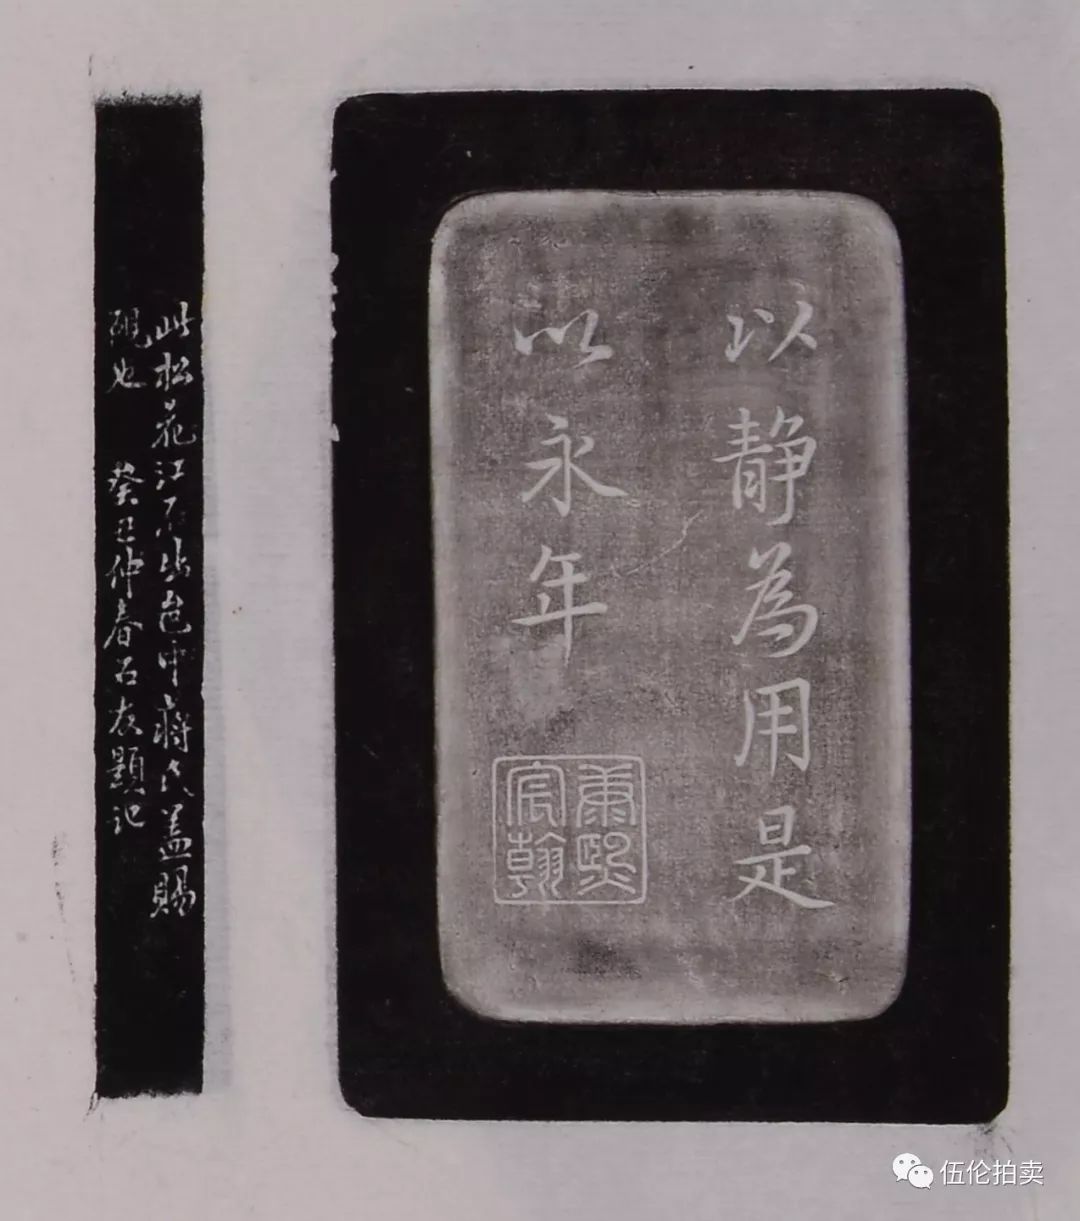 以静為用是
以永年
康熙
宸翰
此松花江石出邑中蔣氏蓋賜
硯也 癸丑仲春石友題記
伍伦拍卖